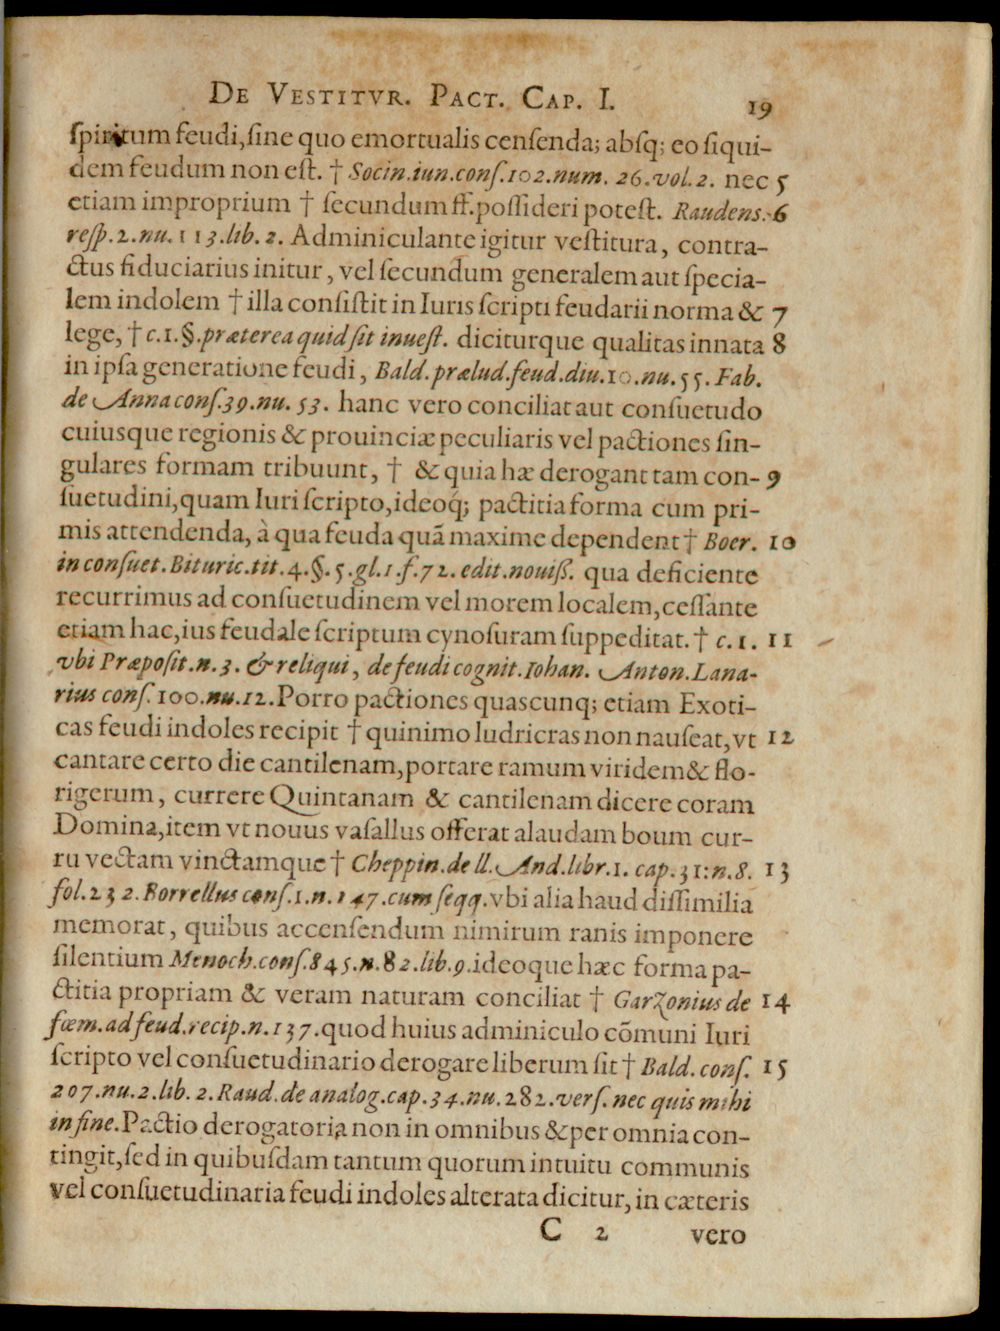 DE VESTITVR. PACT. CAP. I. 19
spiritum feudi, sine quo emortualis censenda; absq; eo siqui-
dem feudum non est. † Socin. iun. cons. 102. num. 26. vol. 2. nec 5
etiam improprium † secundum ff. possideri potest. Raudens. 6
resp. 2. nu. 113. lib. 2. Adminiculante igitur vestitura, contra-
ctus fiduciarius initur, vel secundum generalem aut specia-
lem indolem † illa consistit in Iuris scripti feudarii norma & 7
lege, † c. 1. §. præterea quid sit inuest. diciturque qualitas innata 8
in ipsa generatione feudi, Bald. prælud. feud. diu. 10. nu. 55. Fab.
de Anna cons. 39. nu. 53. hanc vero conciliat aut consuetudo
cuiusque regionis & prouinciæ peculiaris vel pactiones sin-
gulares formam tribuunt, † & quia hæ derogant tam con- 9
suetudini, quam Iuri scripto, ideoq́; pactitia forma cum pri-
mis attendenda, à qua feuda quā maxime dependent † Boer. 10
in consuet. Bituric. tit. 4. §. 5. gl. 1. f. 72. edit. nouiß. qua deficiente
recurrimus ad consuetudinem vel morem localem, cessante
etiam hac, ius feudale scriptum cynosuram suppeditat. † c. 1. 11
vbi Præposit. n. 3. & reliqui, de feudi cognit. Iohan. Anton. Lana-
rius cons. 100. nu. 12. Porro pactiones quascunq; etiam Exoti-
cas feudi indoles recipit † quinimo ludricras non nauseat, vt 12
cantare certo die cantilenam, portare ramum viridem & flo-
rigerum, currere Quintanam & cantilenam dicere coram
Domina, item vt nouus vasallus offerat alaudam boum cur-
ru vectam vinctamque † Cheppin. de ll. And. libr. 1. cap. 31: n. 8. 13
fol. 232. Borrellus cons. 1. n. 147. cum seqq. vbi alia haud dissimilia
memorat, quibus accensendum nimirum ranis imponere
silentium Menoch. cons. 845. n. 82. lib. 9. ideoque hæc forma pa-
ctitia propriam & veram naturam conciliat † Garzonius de 14
fœm. ad feud. recip. n. 137. quod huius adminiculo cōmuni Iuri
scripto vel consuetudinario derogare liberum sit † Bald. cons. 15
207. nu. 2. lib. 2. Raud. de analog. cap. 34. nu. 282. vers. nec quis mihi
in fine. Pactio derogatoria non in omnibus & per omnia con-
tingit, sed in quibusdam tantum quorum intuitu communis
vel consuetudinaria feudi indoles alterata dicitur, in cæteris
C 2 vero